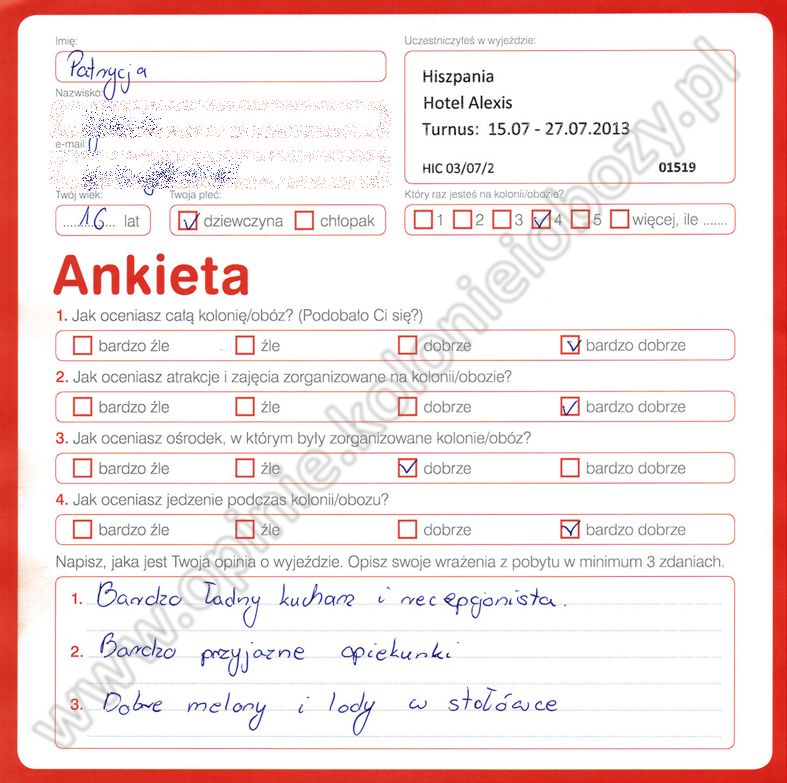 Imię:
Patrycja
Nazwisko:
e-mail:
Twój wiek:
16 lat
Twoja płeć:
dziewczyna chłopak
Uczestniczyłeś w wyjeździe:
Hiszpania
Hotel Alexis
Turnus: 15.07 - 27.07.2013
HIC 03/07/2 01519
Który raz jesteś na kolonii/obozie?
1 2 3 4 5 więcej, ile .......
Ankieta
1. Jak oceniasz całą kolonię/obóz? (Podobało Ci się?)
bardzo źle źle dobrze bardzo dobrze
2. Jak oceniasz atrakcje i zajęcia zorganizowane na kolonii/obozie?
bardzo źle źle dobrze bardzo dobrze
3. Jak oceniasz ośrodek, w którym były zorganizowane kolonie/obóz?
bardzo źle źle dobrze bardzo dobrze
4. Jak oceniasz jedzenie podczas kolonii/obozu?
bardzo źle źle dobrze bardzo dobrze
Napisz, jaka jest Twoja opinia o wyjeździe. Opisz swoje wrażenia z pobytu w minimum 3 zdaniach.
1. Bardzo ładny kucharz i recepcjonista.
2. Bardzo przyjazne opiekunki
3. Dobre melony i lody w stołówce
www.opinie.kolonieiobozy.pl